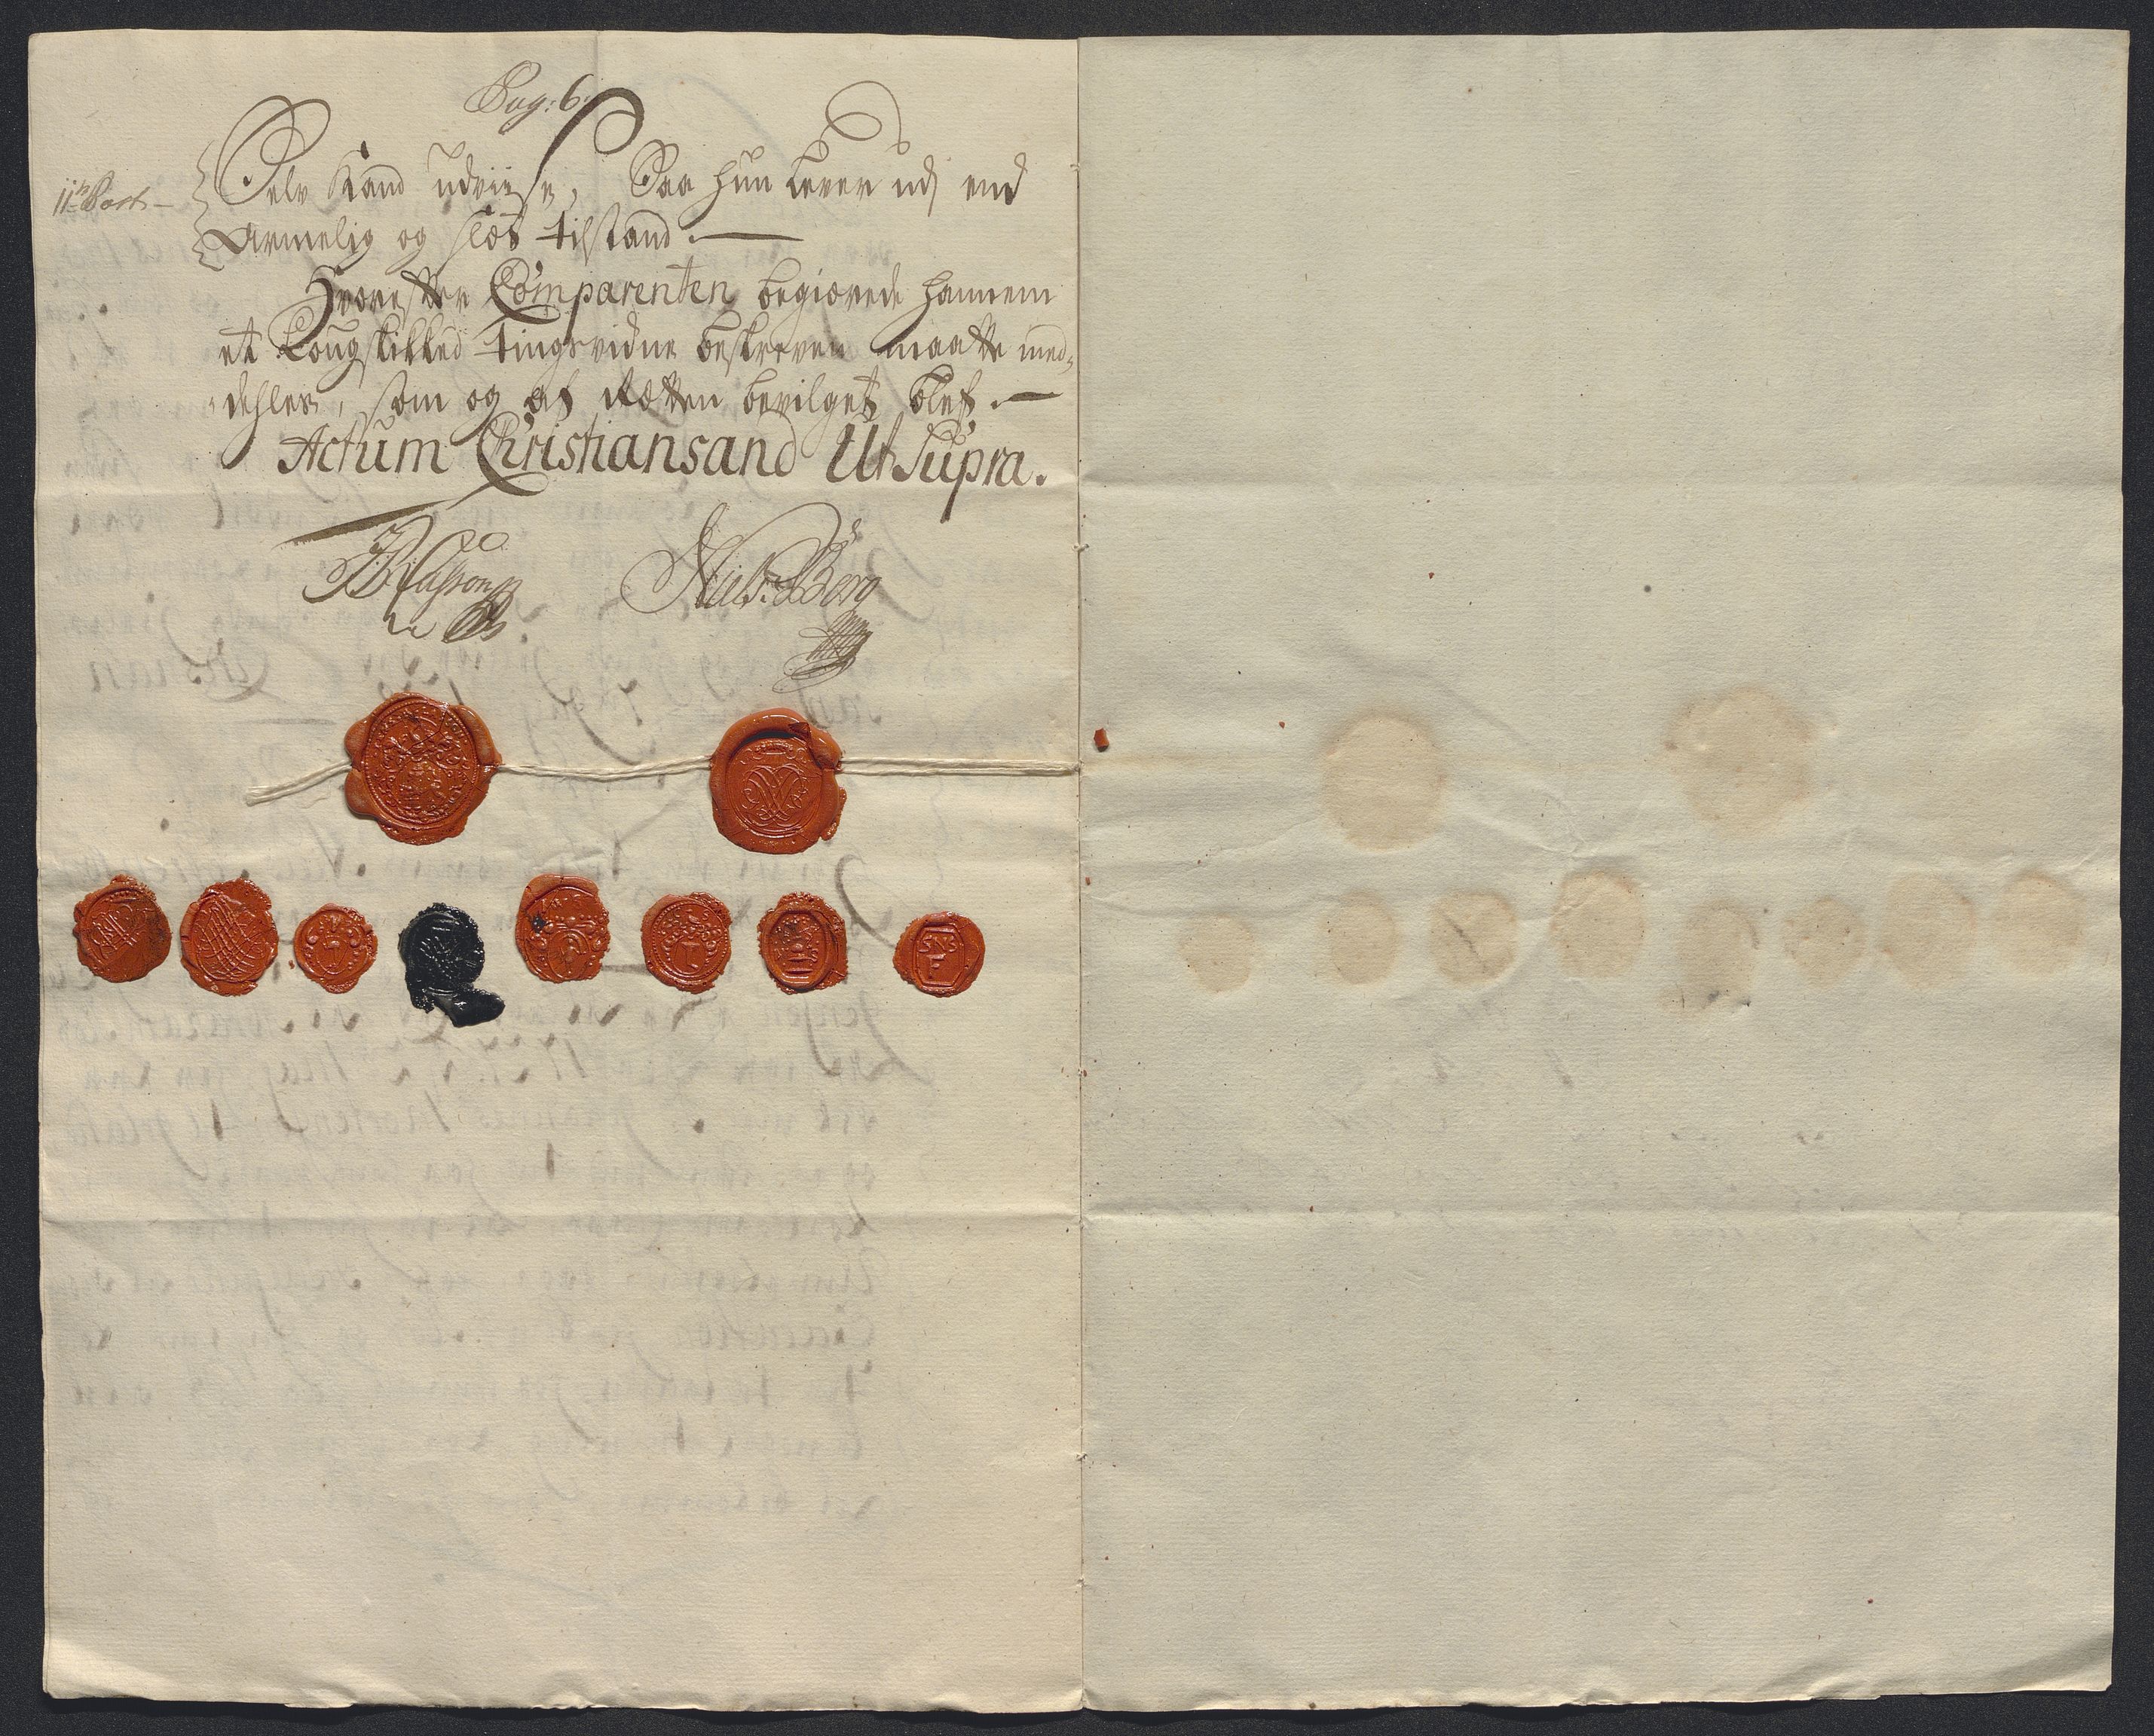 Pag: 6.
11te Post
Selv Kand udviise, Saa hun Lever udj end
Armelig og slæt tilstand.
Hvorefter Comparenten begiærede hannem
et Lougskikked tingsvidne beskreven maatte med,,
,,dehles, som og af Rætten bevilget blef.
Actum Christiansand Ut Supra.
Niels Berg
SNS
F